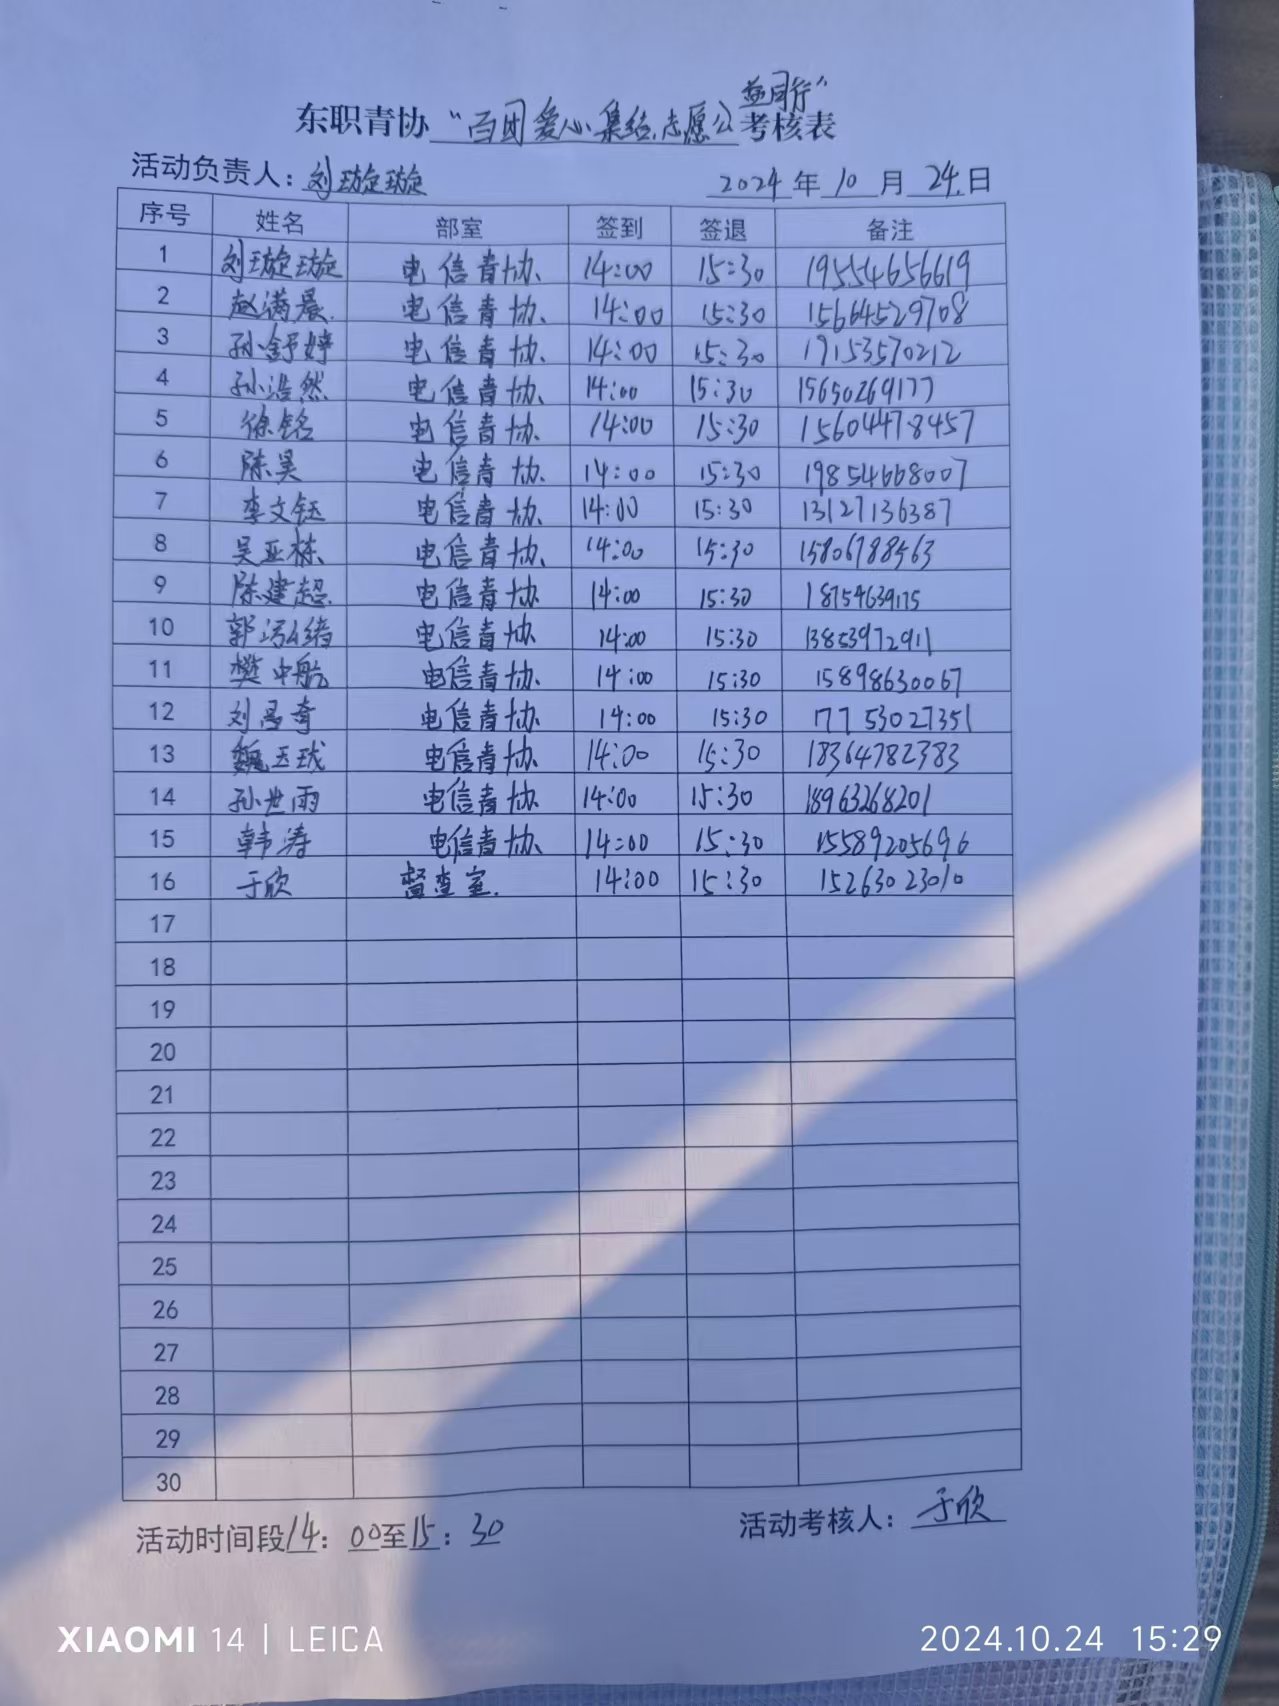 益同行”
东职青协“百团爱心集结,志愿公考核表
活动负责人:刘璇璇 2024年10月24日
序号 姓名 部室 签到 签退 备注
1 刘璇璇 电信青协 14:00 15:30 19554656619
2 赵满晨 电信青协 14:00 15:30 15664529708
3 孙舒婷 电信青协 14:00 15:30 19153570212
4 孙浩然 电信青协 14:00 15:30 15650269177
5 徐铭 电信青协 14:00 15:30 15604478457
6 陈昊 电信青协 14:00 15:30 19854668007
7 李文钰 电信青协 14:00 15:30 13127136387
8 吴亚栋 电信青协 14:00 15:30 15806788563
9 陈建超 电信青协 14:00 15:30 18754639115
10 郭 电信青协 14:00 15:30 13853972911
11 樊中航 电信青协 14:00 15:30 15898630067
12 刘昌奇 电信青协 14:00 15:30 17753027351
13 魏玉珑 电信青协 14:00 15:30 18364782383
14 孙世雨 电信青协 14:00 15:30 18963268201
15 韩涛 电信青协 14:00 15:30 15589205696
16 于欣 督查室 14:00 15:30 15263023010
17
18
19
20
21
22
23
24
25
26
27
28
29
30
活动时间段14:00至15:30 活动考核人:于欣
XIAOMI 14 | LEICA 2024.10.24 15:29